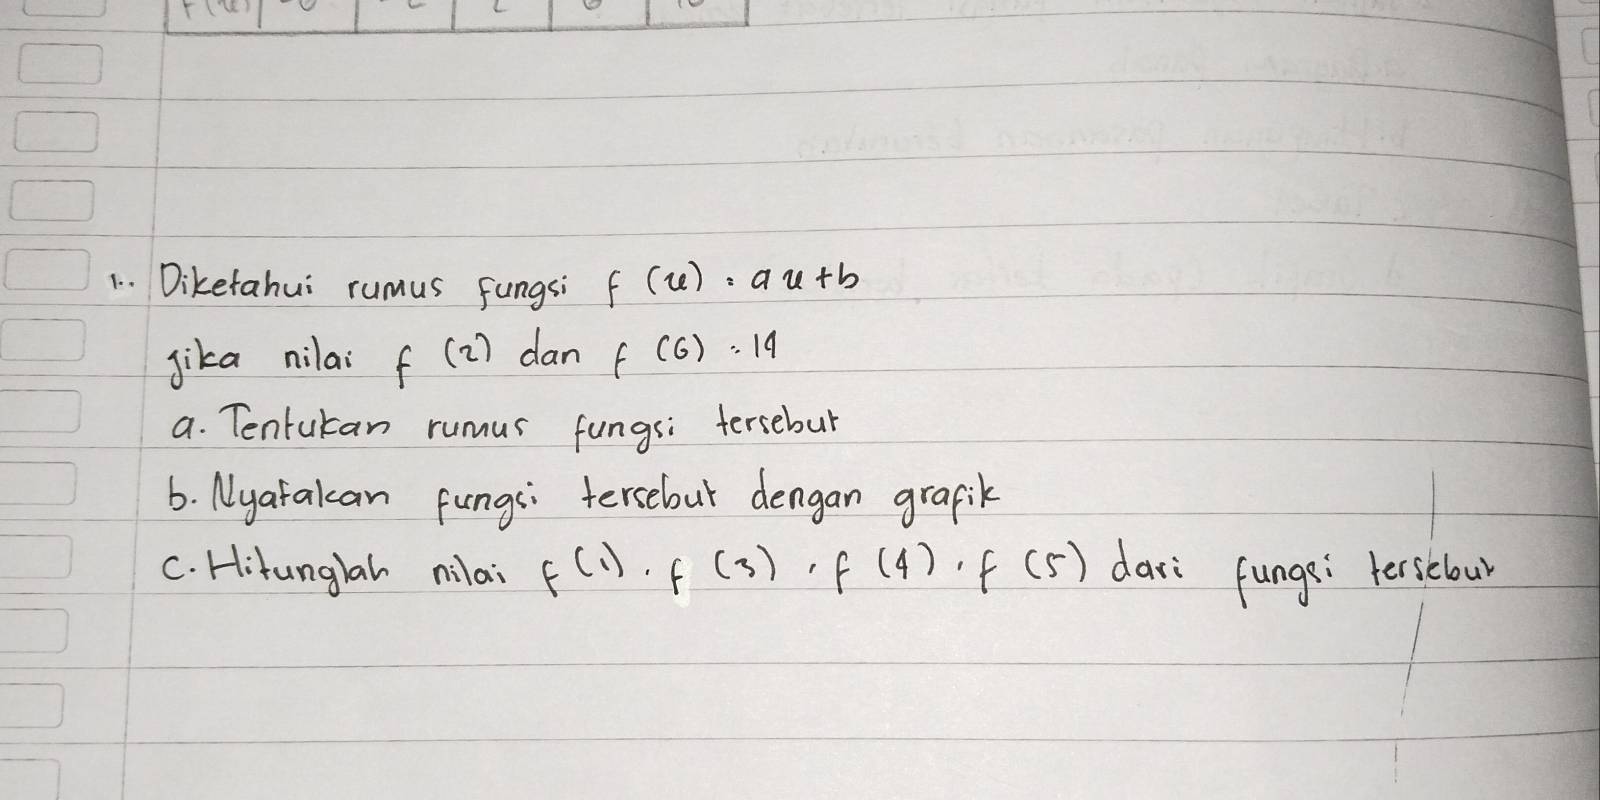 1. Diketahui rumus fungsi f (x) = ax+b
jika nilai f (2) dan f (6) = 14
a. Tentukan rumus fungsi tersebut
b. Nyatakan fungsi tersebut dengan grafik
c. Hitunglah nilai f(1), f (3), f (4), f (5) dari fungsi tersebut